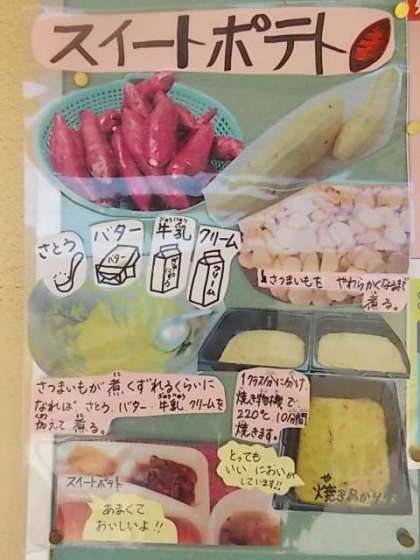 スイートポテト
さとう
バター
ぎゅうにゅう
牛乳
クリーム
バター
ぎゅうにゅう
クリーム
さつまいもを やわらかくなるまで
煮る。
さつまいもが煮くずれるくらいに
なれば さとう、バター、牛乳、クリームを
加えて 煮る。
1クラス分に分け
焼き物機で
220℃ 10分間
焼きます。
とっても
いい においが
しています!!
焼きあがり
スイートポテト
あまくて
おいしいよ!!